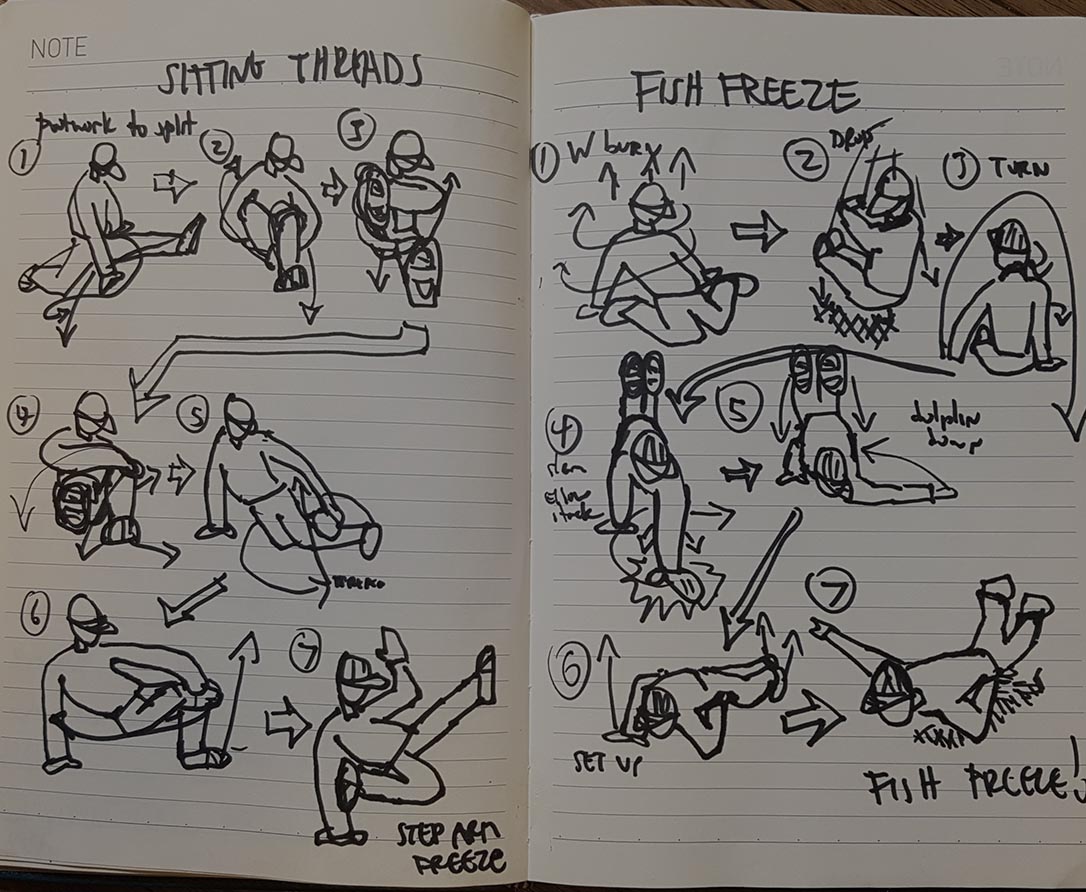 NOTE
SITTING THREADS
footwork to split
1
2
3
4
5
THREAD
6
7
STEP ARM
FREEZE
FISH FREEZE
1
W
2
DROP
3
TURN
4
slam
elbow
5
dolphin
6
SET UP
7
FISH FREEZE!